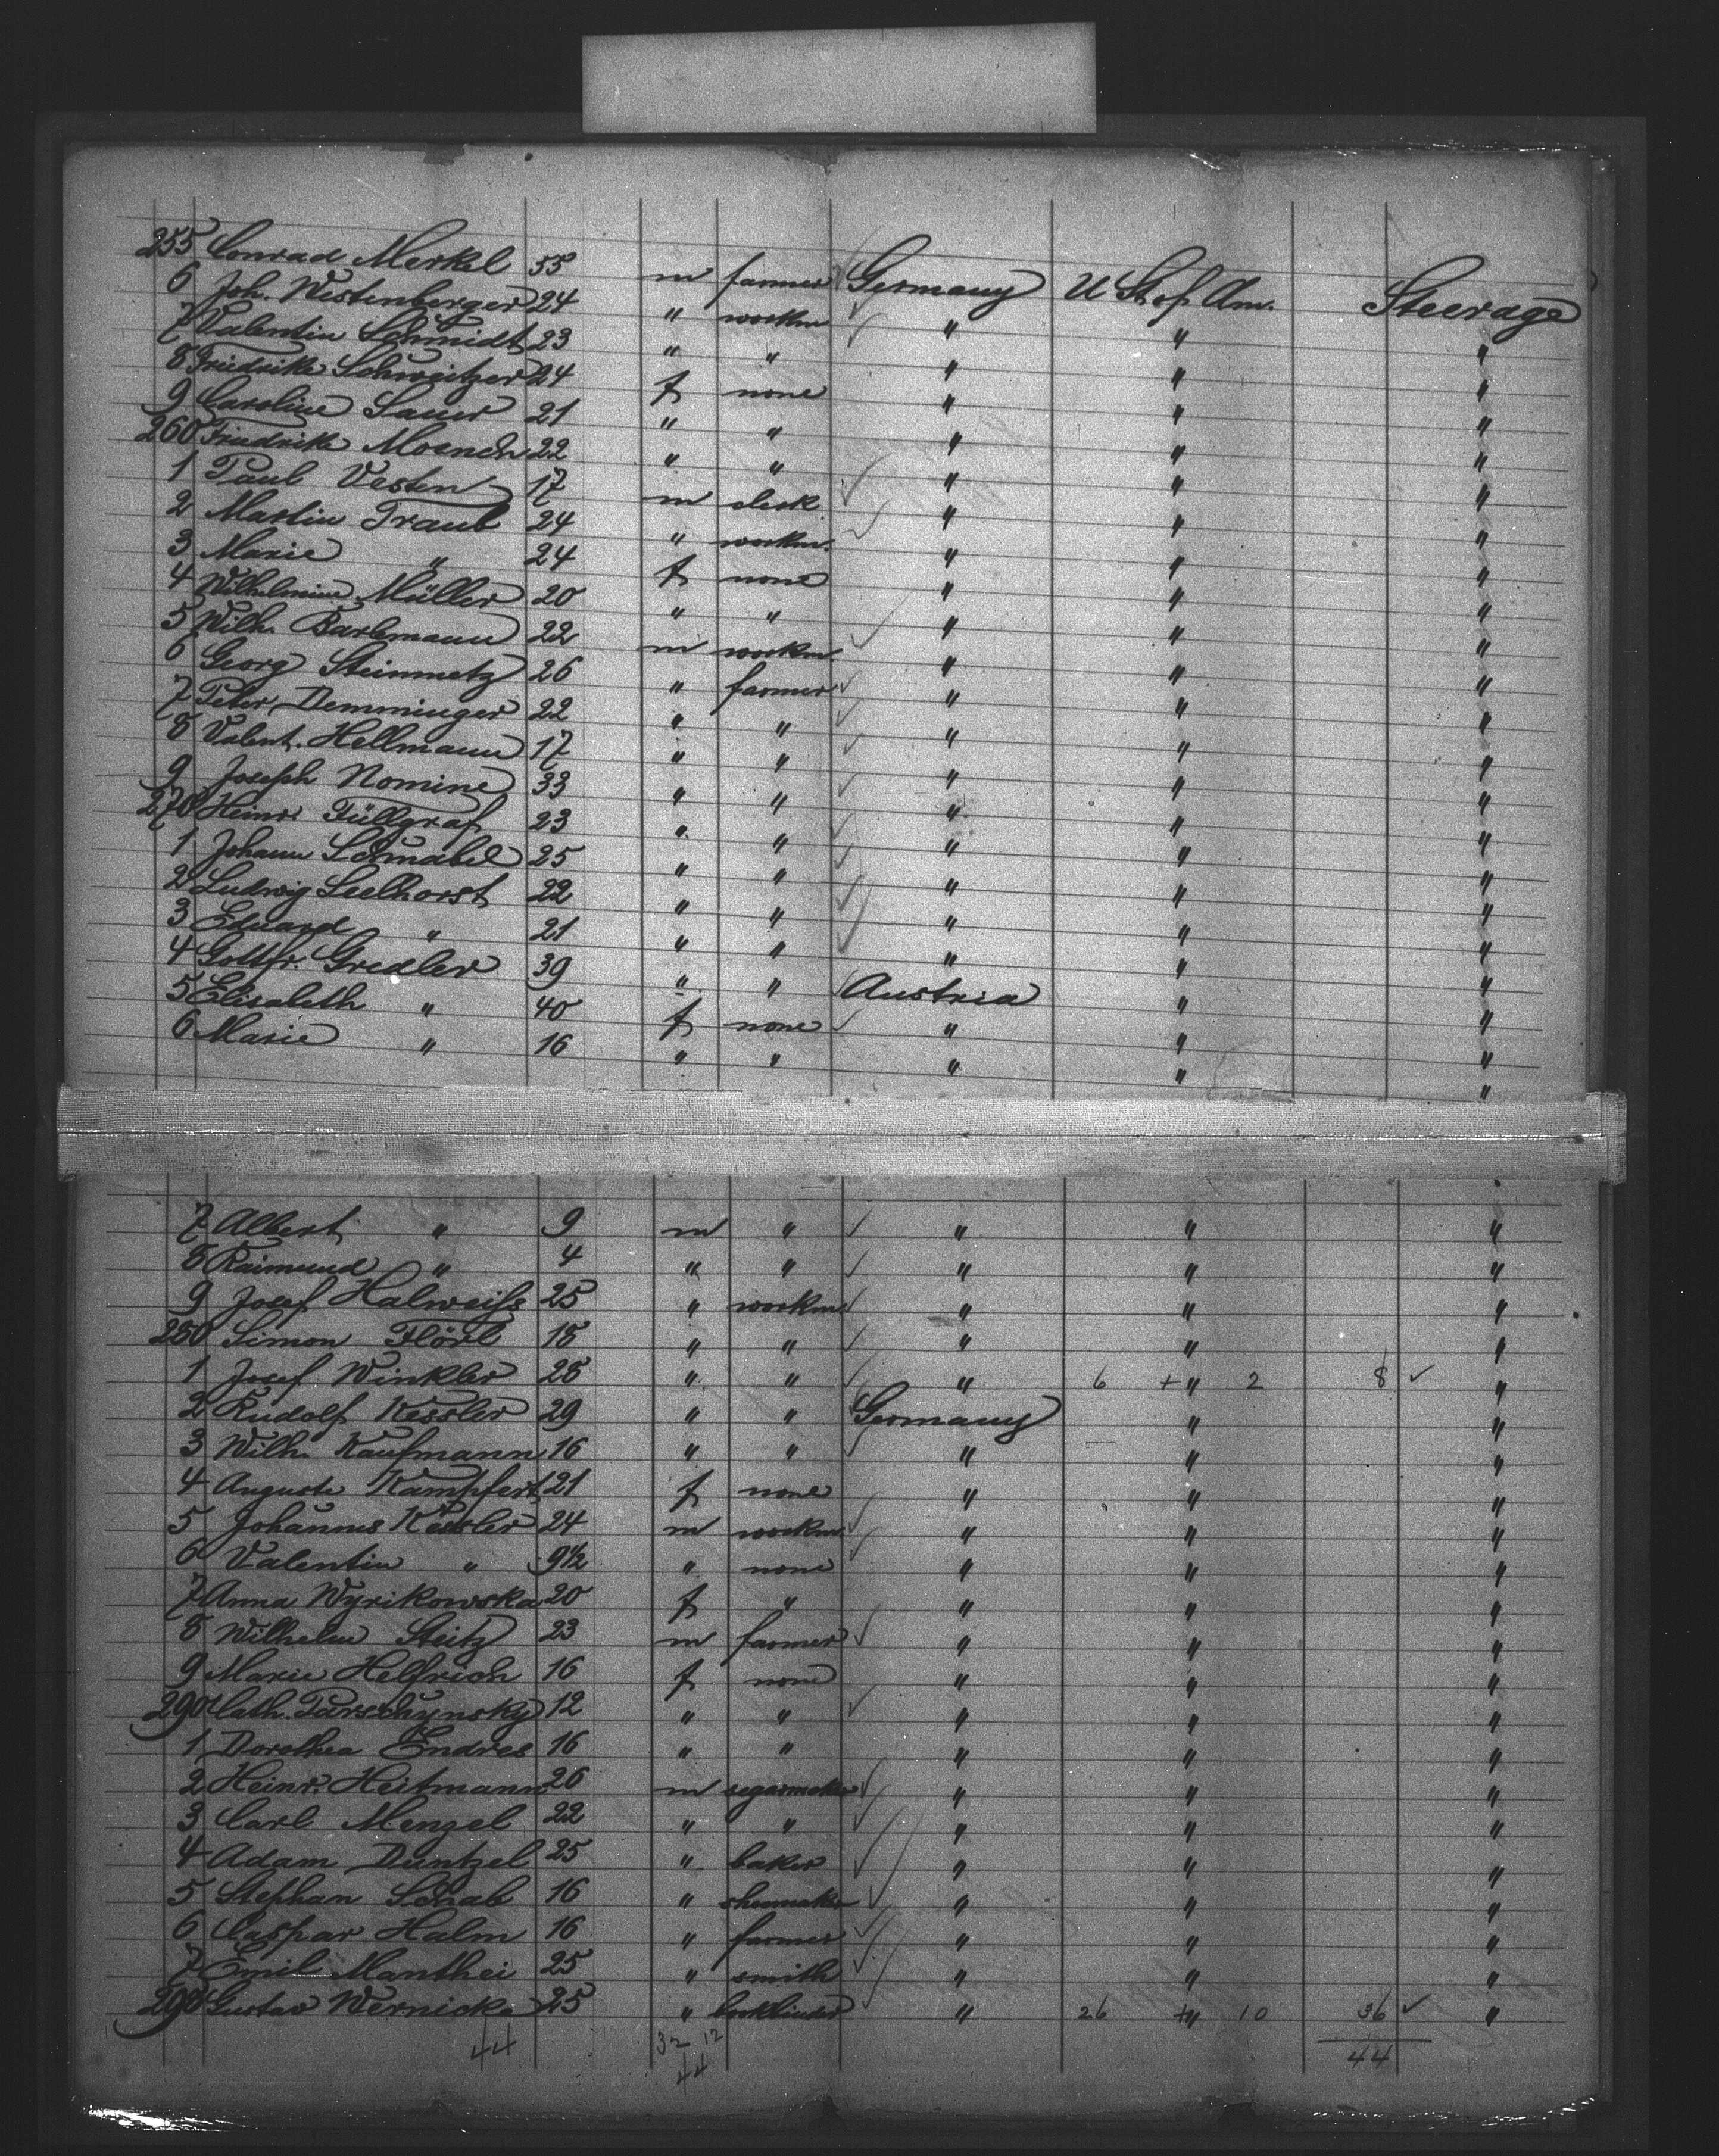 255 Conrad Merkel 55 m farmer Germany U St. of Am. Steerage
6 Joh. Westenberger 24 " workm " " "
7 Valentin Schmidt 23 " " " " "
8 Friedrike Schweitzer 24 f none " " "
9 Caroline Sauer 21 " " " " "
260 Friedrike Moench 22 " " " " "
1 Paul Vesten 17 m clerk " " "
2 Martin Traub 24 " workm. " " "
3 Marie " 24 f none " " "
4 Wilhelmine Müller 20 " " " " "
5 Wilh. Barlemann 22 m workm. " " "
6 Georg Steinmetz 26 " farmer " " "
7 Peter Demminger 22 " " " " "
8 Valent. Hellmann 17 " " " " "
9 Joseph Nomine 33 " " " " "
270 Heinr. Füllgraf 23 " " " " "
1 Johann Schnabel 25 " " " " "
2 Ludwig Seelhorst 22 " " " " "
3 Eduard " 21 " " " " "
4 Gottfr. Gredler 39 " " Austria " "
5 Elisabeth " 40 f none " " "
6 Marie " 16 " " " " "
7 Albert " 9 m " " " "
8 Raimund " 4 " " " " "
9 Josef Halweiss 25 " workm. " " "
280 Simon Flörl 18 " " " " "
1 Josef Winkler 28 " " " 6 + " 2 8 ✓ "
2 Rudolf Kessler 29 " " Germany " "
3 Wilh. Kaufmann 16 " " " " "
4 Auguste Kampfert 21 f none " " "
5 Johannes Kessler 24 m workm. " " "
6 Valentin " 9½ " none " " "
7 Anna Wyrikowska 20 f " " " "
8 Wilhelm Steitz 23 m farmer " " "
9 Marie Helfrich 16 f none " " "
290 Cath. Parschynsky 12 " " " " "
1 Dorothea Endres 16 " " " " "
2 Heinr. Heitmann 26 m segarmaker " " "
3 Carl Menzel 22 " " " " "
4 Adam Duntzel 25 " baker " " "
5 Stephan Schab 16 " shoemaker " " "
6 Caspar Halm 16 " farmer " " "
7 Emil Manthei 25 " smith " " "
298 Gustav Wernicka 25 " bookbinder " 26 + " 10 36 ✓ "
44 32 12 44
44